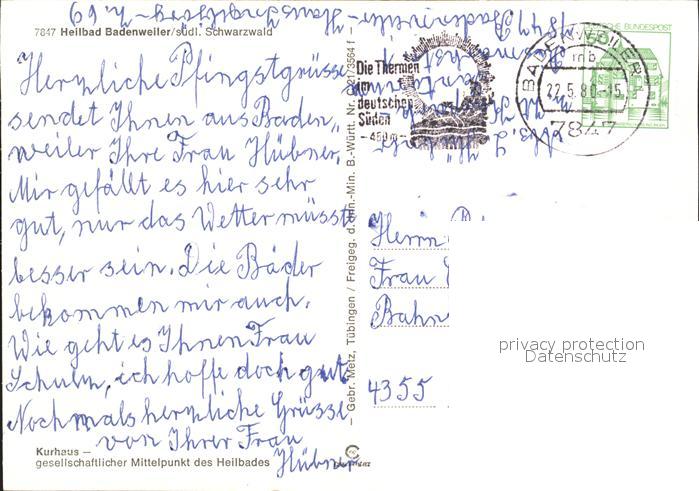 7847 Heilbad Badenweiler/südl. Schwarzwald
Herzliche Pfingstgrüsse
sendet Ihnen aus Baden„
weiler Ihre Frau Hübner.
Mir gefällt es hier sehr
gut, nur das Wetter müsste
besser sein. Die Bäder
bekommen mir auch.
Wie geht es Ihnen Frau
Schulm, ich hoffe doch gut.
Nochmals herzliche Grüsse
von Ihrer Frau
Hübner
Kurhaus –
gesellschaftlicher Mittelpunkt des Heilbades
Gebr. Metz, Tübingen / Freigeg. d. Inn.-Min. B.-Württ. Nr.
Die Thermen
im
deutschen
Süden
- 450 m -
BADENWEILER
mb
22.5.80-15
7847
BUNDESPOST
7847 Badenweiler
Herrn
Frau
Bahn
4355
privacy protection
Datenschutz